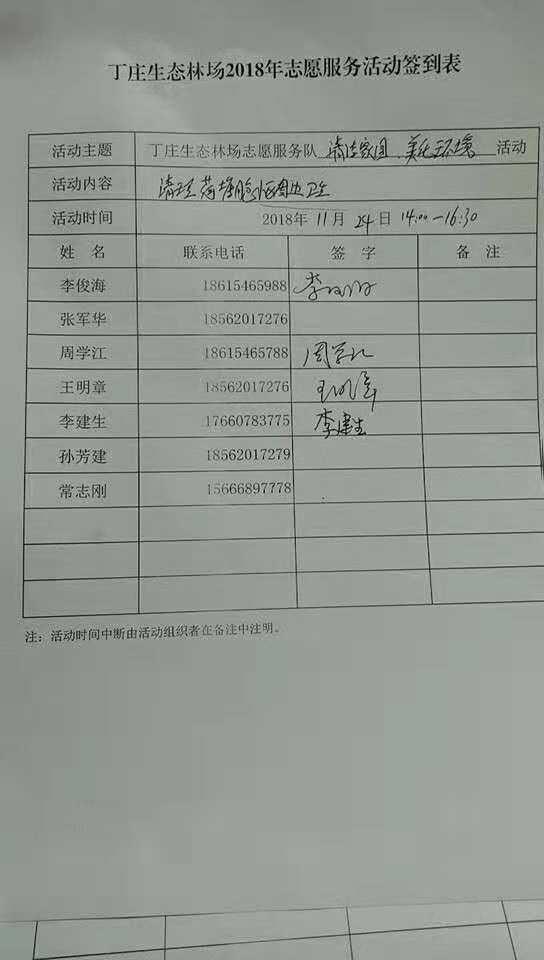 丁庄生态林场2018年志愿服务活动签到表
活动主题 丁庄生态林场志愿服务队 清洁家园、美化环境 活动
活动内容 清理 周边卫生
活动时间 2018年 11月 24日 14:00-16:30
姓 名 联系电话 签 字 备 注
李俊海 18615465988 李俊海
张军华 18562017276
周学江 18615465788 周学江
王明章 18562017276 王明章
李建生 17660783775 李建生
孙芳建 18562017279
常志刚 15666897778
注：活动时间中断由活动组织者在备注中注明。